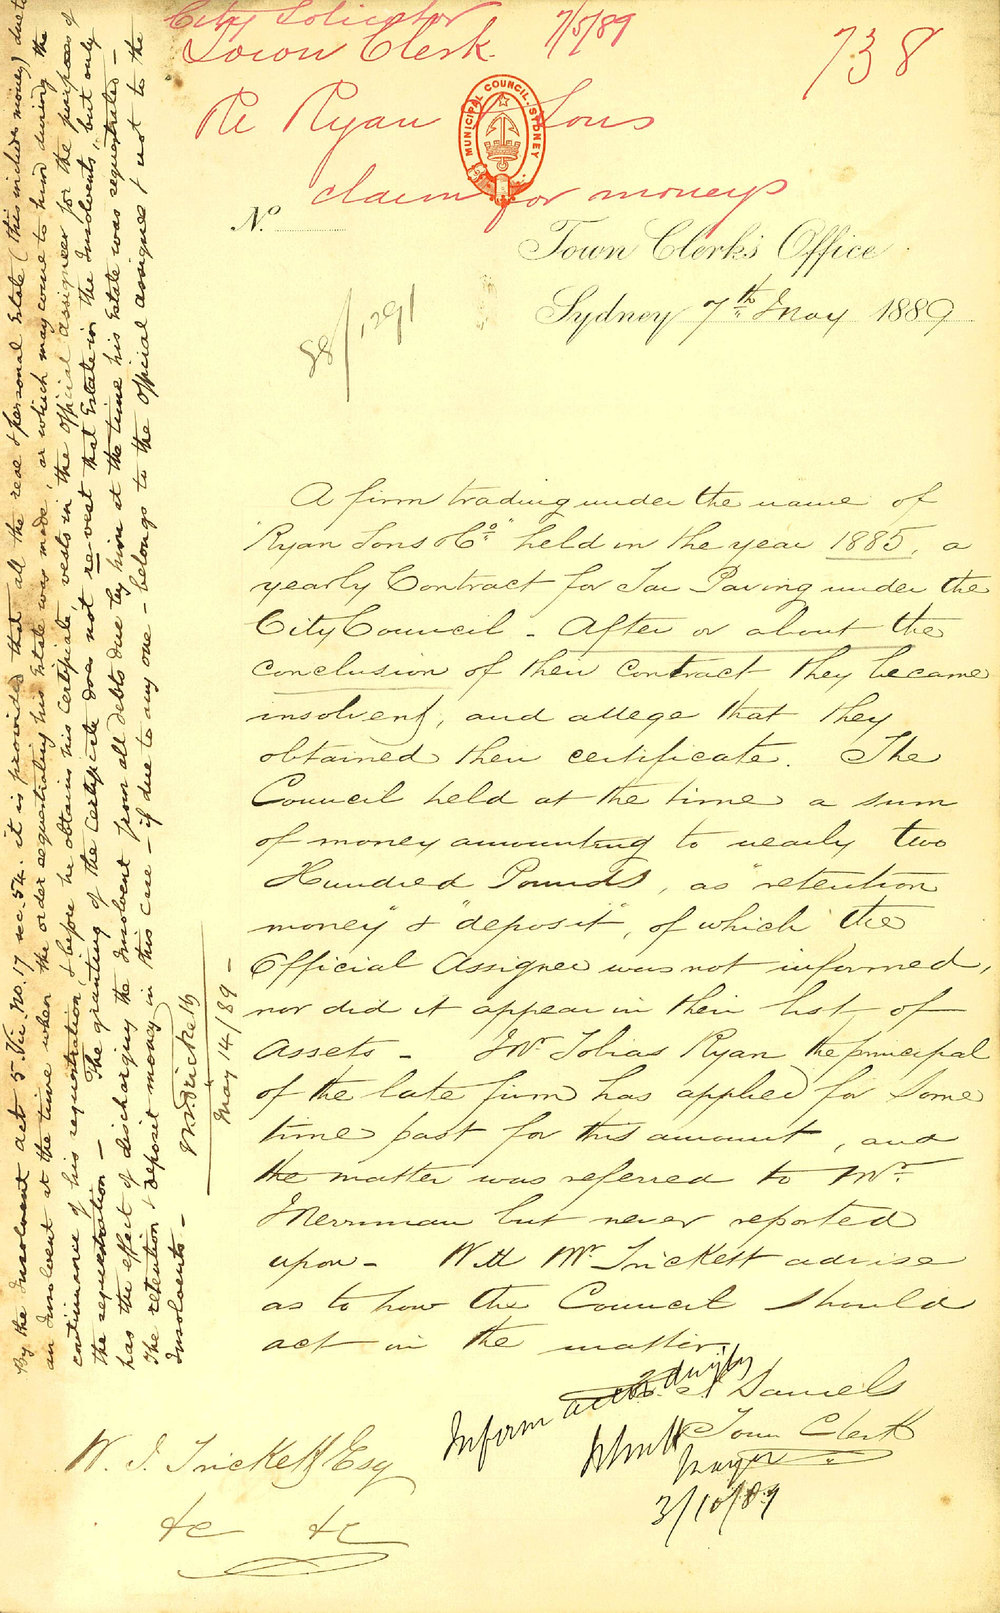 City Solicitor
Town Clerk. 7/5/89
738
Re Ryan & Sons
claim for moneys
MUNICIPAL COUNCIL, SYDNEY
No.
Town Clerk's Office
Sydney 7th May 1889
88/1291
A firm trading under the name of
"Ryan Sons & Co" held in the year 1885, a
yearly Contract for Tar Paving under the
City Council - After or about the
conclusion of their contract they became
insolvent, and allege that they
obtained their certificate. The
Council held at the time a sum
of money amounting to nearly two
Hundred Pounds, as "retention
money" & "deposit", of which the
Official Assignee was not informed,
nor did it appear in their list of
Assets - Mr Tobias Ryan the principal
of the late firm has applied for some
time past for this amount, and
the matter was referred to Mr
Merriman but never reported
upon - Will Mr Trickett advise
as to how the Council should
act in the matter.
Daniels
Town Clerk
Inform accordingly
Mayor
3/10/89
W. J. Trickett Esq
&c &c
By the Insolvent act 5. Vic. No. 17 sec. 54. it is provided that all the real & personal Estate (this includes money) due to
an Insolvent at the time when the order sequestrating his Estate was made, or which may come to him during the
continuance of his sequestration, & before he obtains his Certificate, vests in the official assignee for the purposes of
the sequestration - The granting of the Certificate does not re-vest that Estate in the Insolvents, but only
has the effect of discharging the Insolvent from all debts due by him at the time his Estate was sequestrated -
The retention & deposit money in this case - if due to any one - belongs to the official assignee & not to the
Insolvents -
W. J. Trickett
May 14/89 -